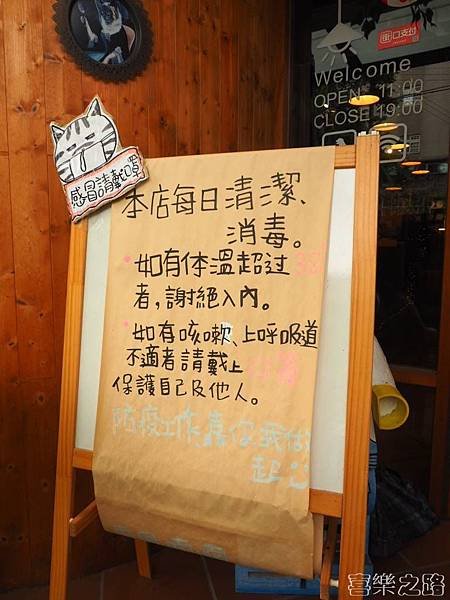 街口支付
Welcome
OPEN 11:00
CLOSE 19:00
感冒請戴口罩
本店每日清潔、
消毒。
*如有体溫超过38
者,謝絕入內。
*如有咳嗽、上呼吸道
不適者請戴上口罩
保護自己及他人。
防疫工作靠你我做
起
喜樂之路